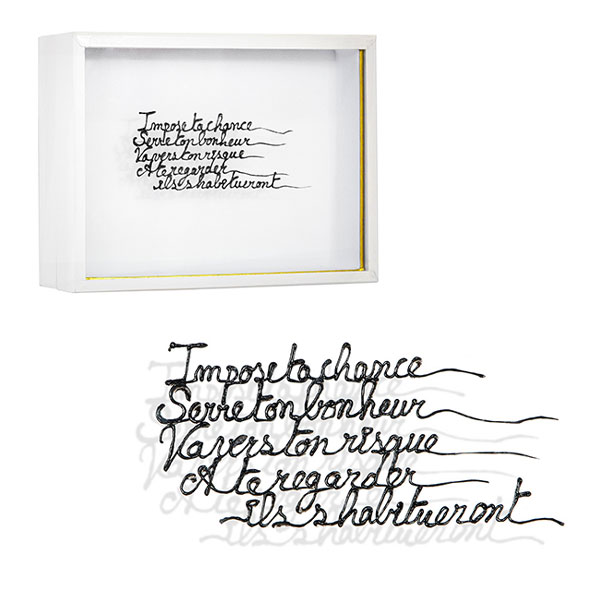 Imposetachance
Serretonbonheur
Vaverstonrisque
Ateregarder
ilss'habitueront
Imposetachance
Serretonbonheur
Vaverstonrisque
A teregarder
ils s'habitueront